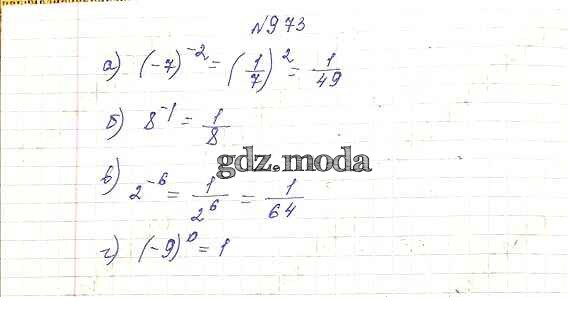 №973
а) (-7)^-2 = (1/7)^2 = 1/49
б) 8^-1 = 1/8
gdz.moda
в) 2^-6 = 1/2^6 = 1/64
г) (-9)^0 = 1